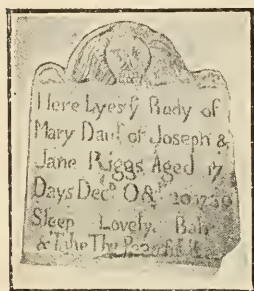 Here Lyes yͤ Body of
Mary Dauᵗ of Joseph &
Jane Riggs Aged 17
Days Decᵈ
Sleep Lovely Bab
& Take Thy Peaceful